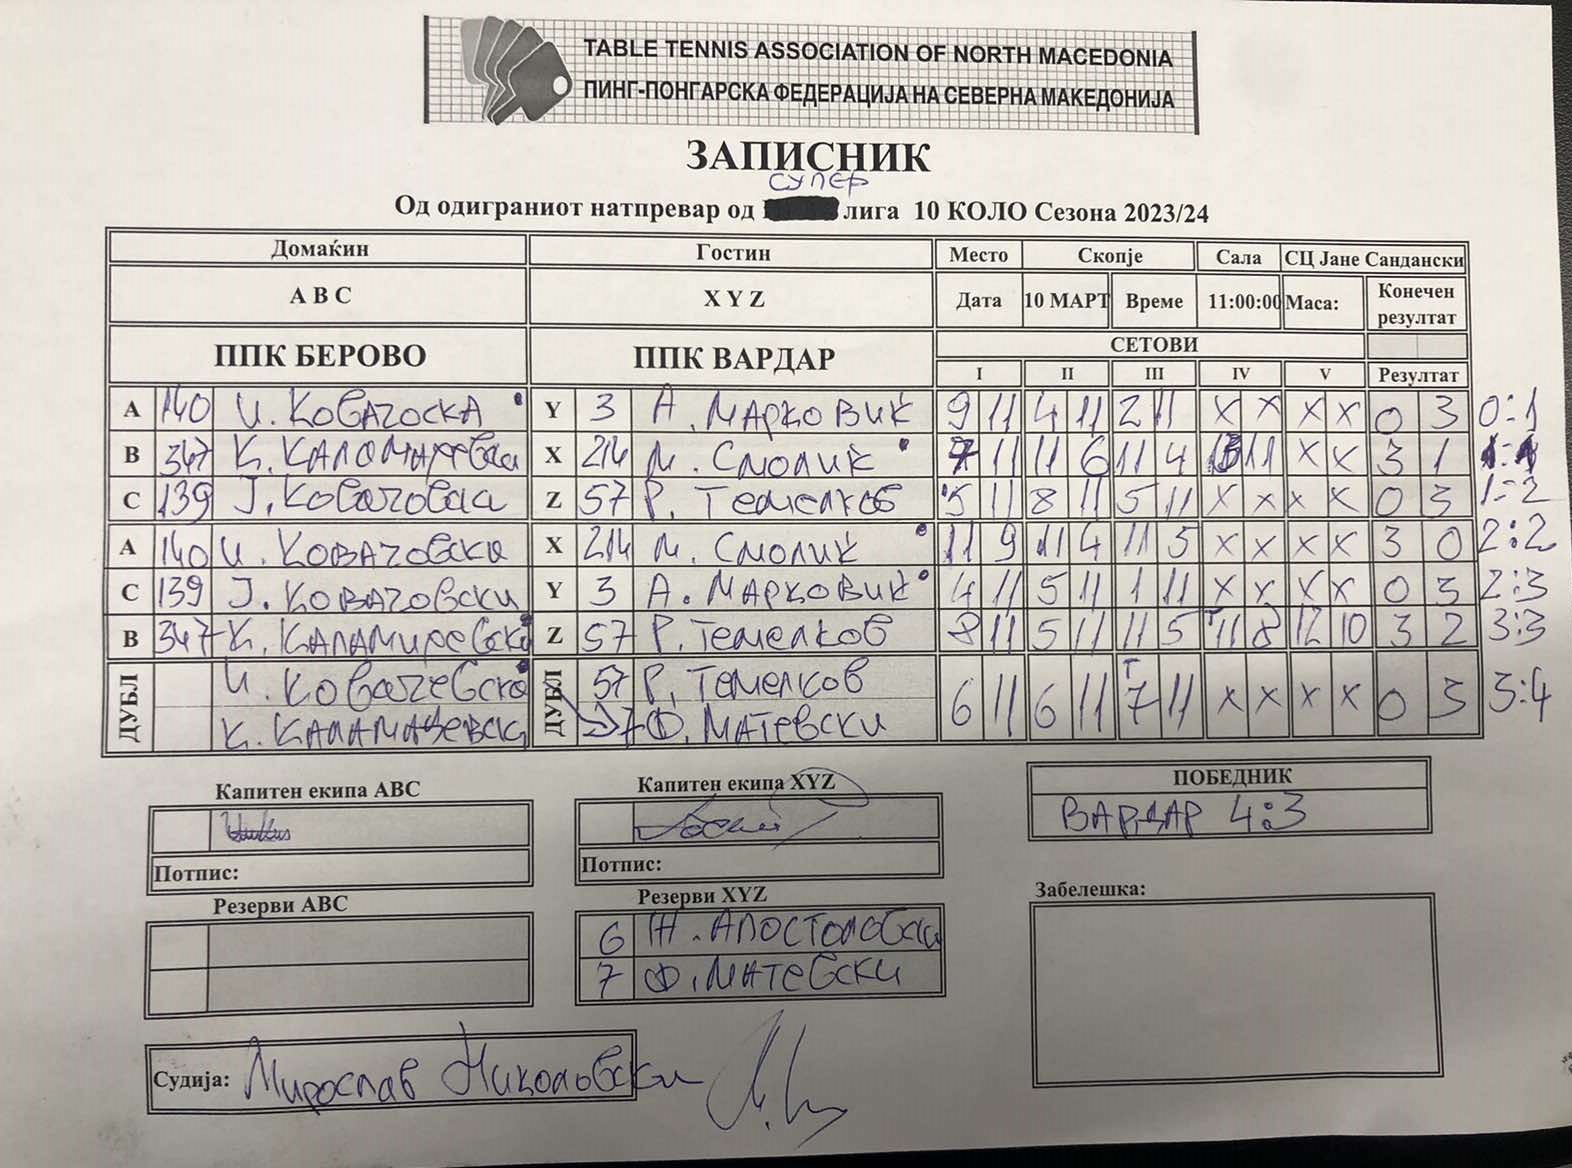 TABLE TENNIS ASSOCIATION OF NORTH MACEDONIA
ПИНГ-ПОНГАРСКА ФЕДЕРАЦИЈА НА СЕВЕРНА МАКЕДОНИЈА
ЗАПИСНИК
СУПЕР
Од одиграниот натпревар од лига 10 КОЛО Сезона 2023/24
Домаќин Гостин Место Скопје Сала СЦ Јане Сандански
A B C X Y Z Дата 10 МАРТ Време 11:00:00 Маса: Конечен резултат
ППК БЕРОВО ППК ВАРДАР СЕТОВИ
I II III IV V Резултат
A 140 И. Ковачоска Y 3 А. Марковиќ 9 11 4 11 2 11 X X X X 0 3 0:1
B 347 X 214 М. Смолиќ 7 11 11 6 11 4 13 11 X X 3 1 1:1
C 139 Ј. Ковачовски Z 57 Р. Темелков 5 11 8 11 5 11 X X X X 0 3 1:2
A 140 И. Ковачовски X 214 М. Смолиќ 11 9 11 4 11 5 X X X X 3 0 2:2
C 139 Ј. Ковачовски Y 3 А. Марковиќ 4 11 5 11 1 11 X X X X 0 3 2:3
B 347 К. Каламиревски Z 57 Р. Темелков 8 11 5 11 11 5 T 11 8 12 10 3 2 3:3
ДУБЛ И. Ковачевски ДУБЛ 57 Р. Темелков 6 11 6 11 T 7 11 X X X X 0 3 3:4
7 Ф. Матевски
Капитен екипа ABC Капитен екипа XYZ ПОБЕДНИК
ВАРДАР 4:3
Потпис: Потпис:
Резерви ABC Резерви XYZ Забелешка:
6 Ж. Апостоловски
7 Ф. Матевски
Судија: Мирослав Николовски